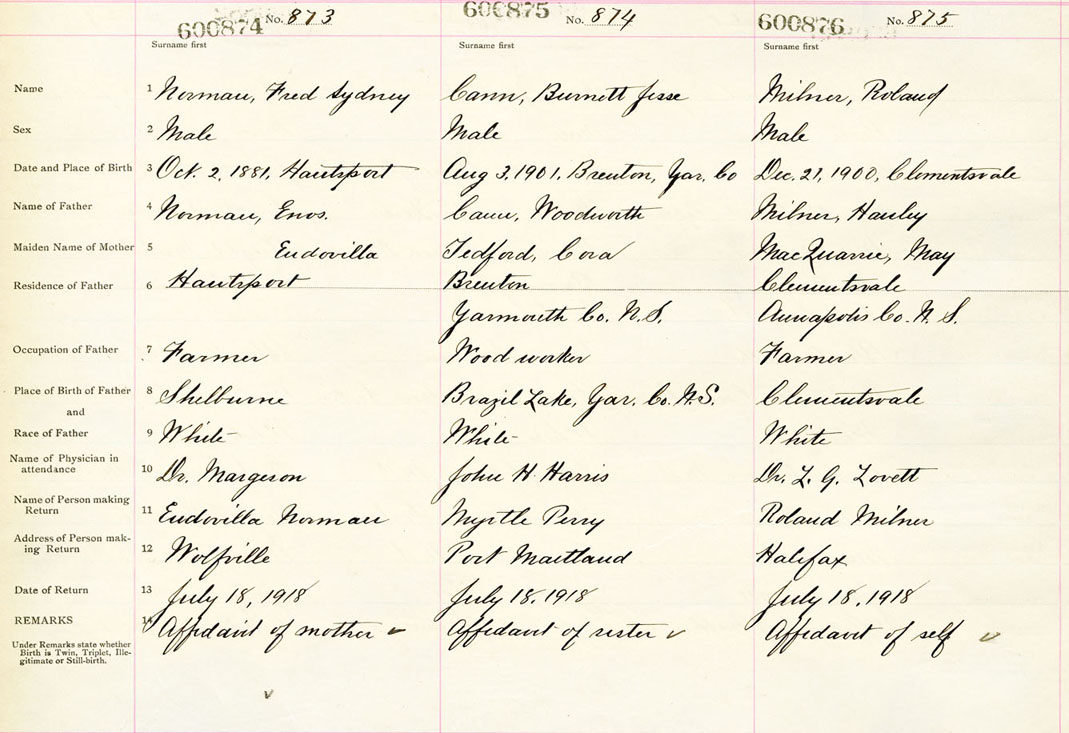 600874 No. 873 600875 No. 874 600876 No. 875
Surname first Surname first Surname first
Name 1 Norman, Fred Sydney Cann, Burnett Jesse Milner, Roland
Sex 2 Male Male Male
Date and Place of Birth 3 Oct. 2, 1881, Hantsport Aug 3, 1901, Brenton, Yar. Co Dec. 21, 1900, Clementsvale
Name of Father 4 Norman, Enos. Cann, Woodworth Milner, Hanley
Maiden Name of Mother 5 Eudovilla Tedford, Cora MacQuarrie, May
Residence of Father 6 Hantsport Brenton Clementsvale
Yarmouth Co. N.S. Annapolis Co. N.S.
Occupation of Father 7 Farmer Wood worker Farmer
Place of Birth of Father 8 Shelburne Brazil Lake, Yar. Co. N.S. Clementsvale
and
Race of Father 9 White White White
Name of Physician in
attendance 10 Dr. Margeson John H. Harris Dr. L. G. Lovett
Name of Person making
Return 11 Eudovilla Norman Myrtle Perry Roland Milner
Address of Person mak-
ing Return 12 Wolfville Port Maitland Halifax
Date of Return 13 July 18, 1918 July 18, 1918 July 18, 1918
REMARKS 14 Affidavit of mother Affidavit of sister Affidavit of self
Under Remarks state whether
Birth is Twin, Triplet, Ille-
gitimate or Still-birth.